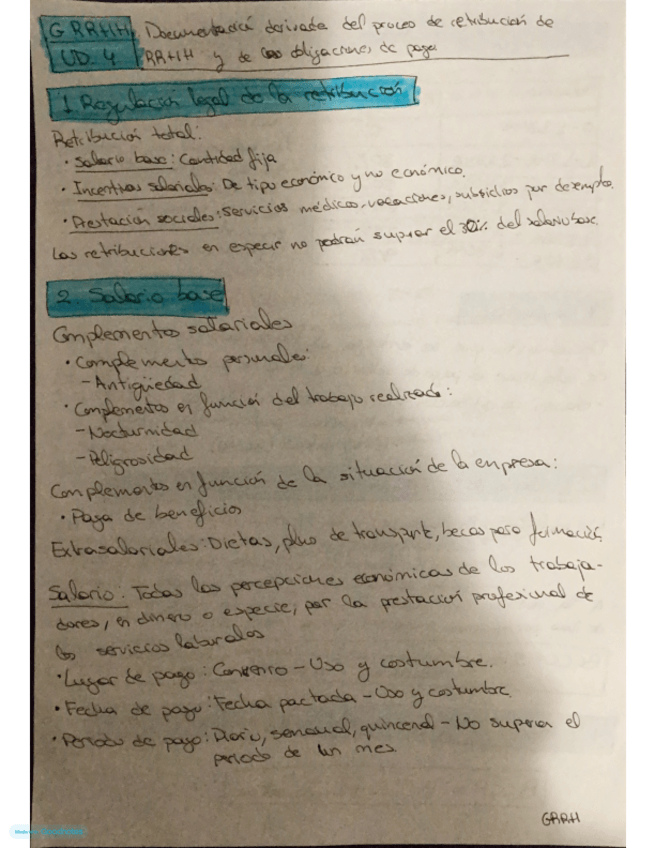 GRRHH Documentación derivada del proceso de retribución de
UD 4 RRHH y de las obligaciones de pago
1. Regulación legal de la retribución
Retribución total:
· Salario base: Cantidad fija
· Incentivos salariales: De tipo económico y no económico.
· Prestación sociales: Servicios médicos, vacaciones, subsidios por desempleo.
Las retribuciones en especie no podrán superar el 30% del salario base.
2. Salario base
Complementos salariales
· Complementos personales:
- Antigüedad
· Complementos en función del trabajo realizado:
- Nocturnidad
- Peligrosidad
Complementos en función de la situación de la empresa:
· Paga de beneficios
Extrasalariales: Dietas, plus de transporte, becas para formación
Salario: Todas las percepciones económicas de los trabaja-
dores, en dinero o especie, por la prestación profesional de
los servicios laborales
· Lugar de pago: Convenio - Uso y costumbre.
· Fecha de pago: Fecha pactada - Uso y costumbre.
· Periodo de pago: Diario, semanal, quincenal - No superar el
periodo de un mes.
GRRH